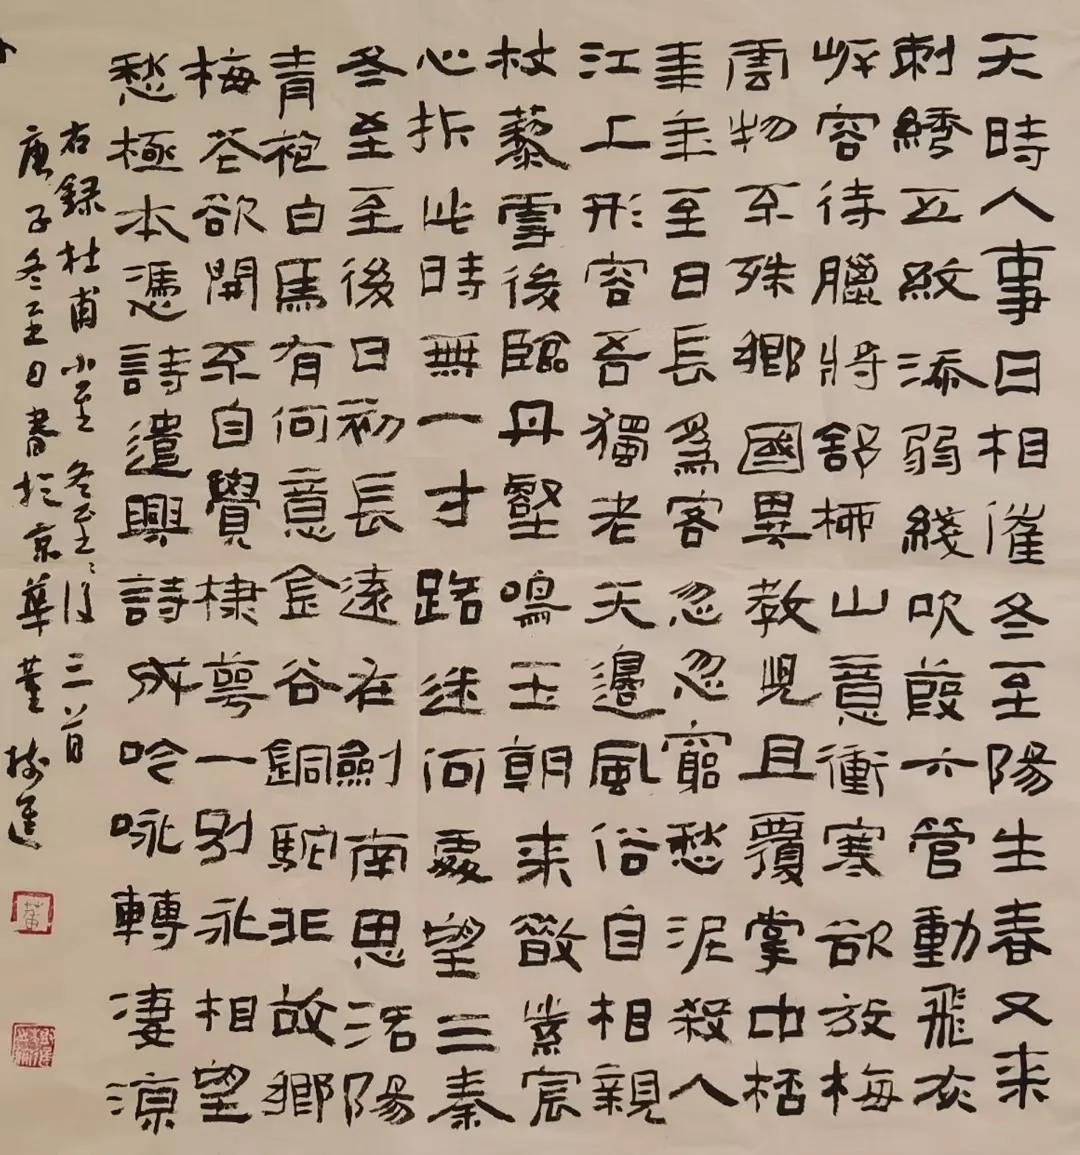 天時人事日相催冬至陽生春又来
刺繡五紋添弱綫吹葭六管動飛灰
岸容待臘將舒柳山意衝寒欲放梅
雲物不殊鄉國異教兒且覆掌中杯
年年至日長為客忽忽窮愁泥殺人
江上形容吾獨老天邊風俗自相親
杖藜雪後臨丹壑鳴玉朝来散紫宸
心折此時無一寸路迷何處望三秦
冬至至後日初長遠在劍南思洛陽
青袍白馬有何意金谷銅駝非故鄉
梅花欲開不自覺棣萼一別永相望
愁極本憑詩遣興詩成吟詠轉淒涼
右録杜甫小至冬至至後三首
庚子冬至日書於京華董
董